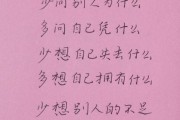 少问别人为什么
多问自己凭什么
少想自己失去什么
多想自己拥有什么
少想别人的不足